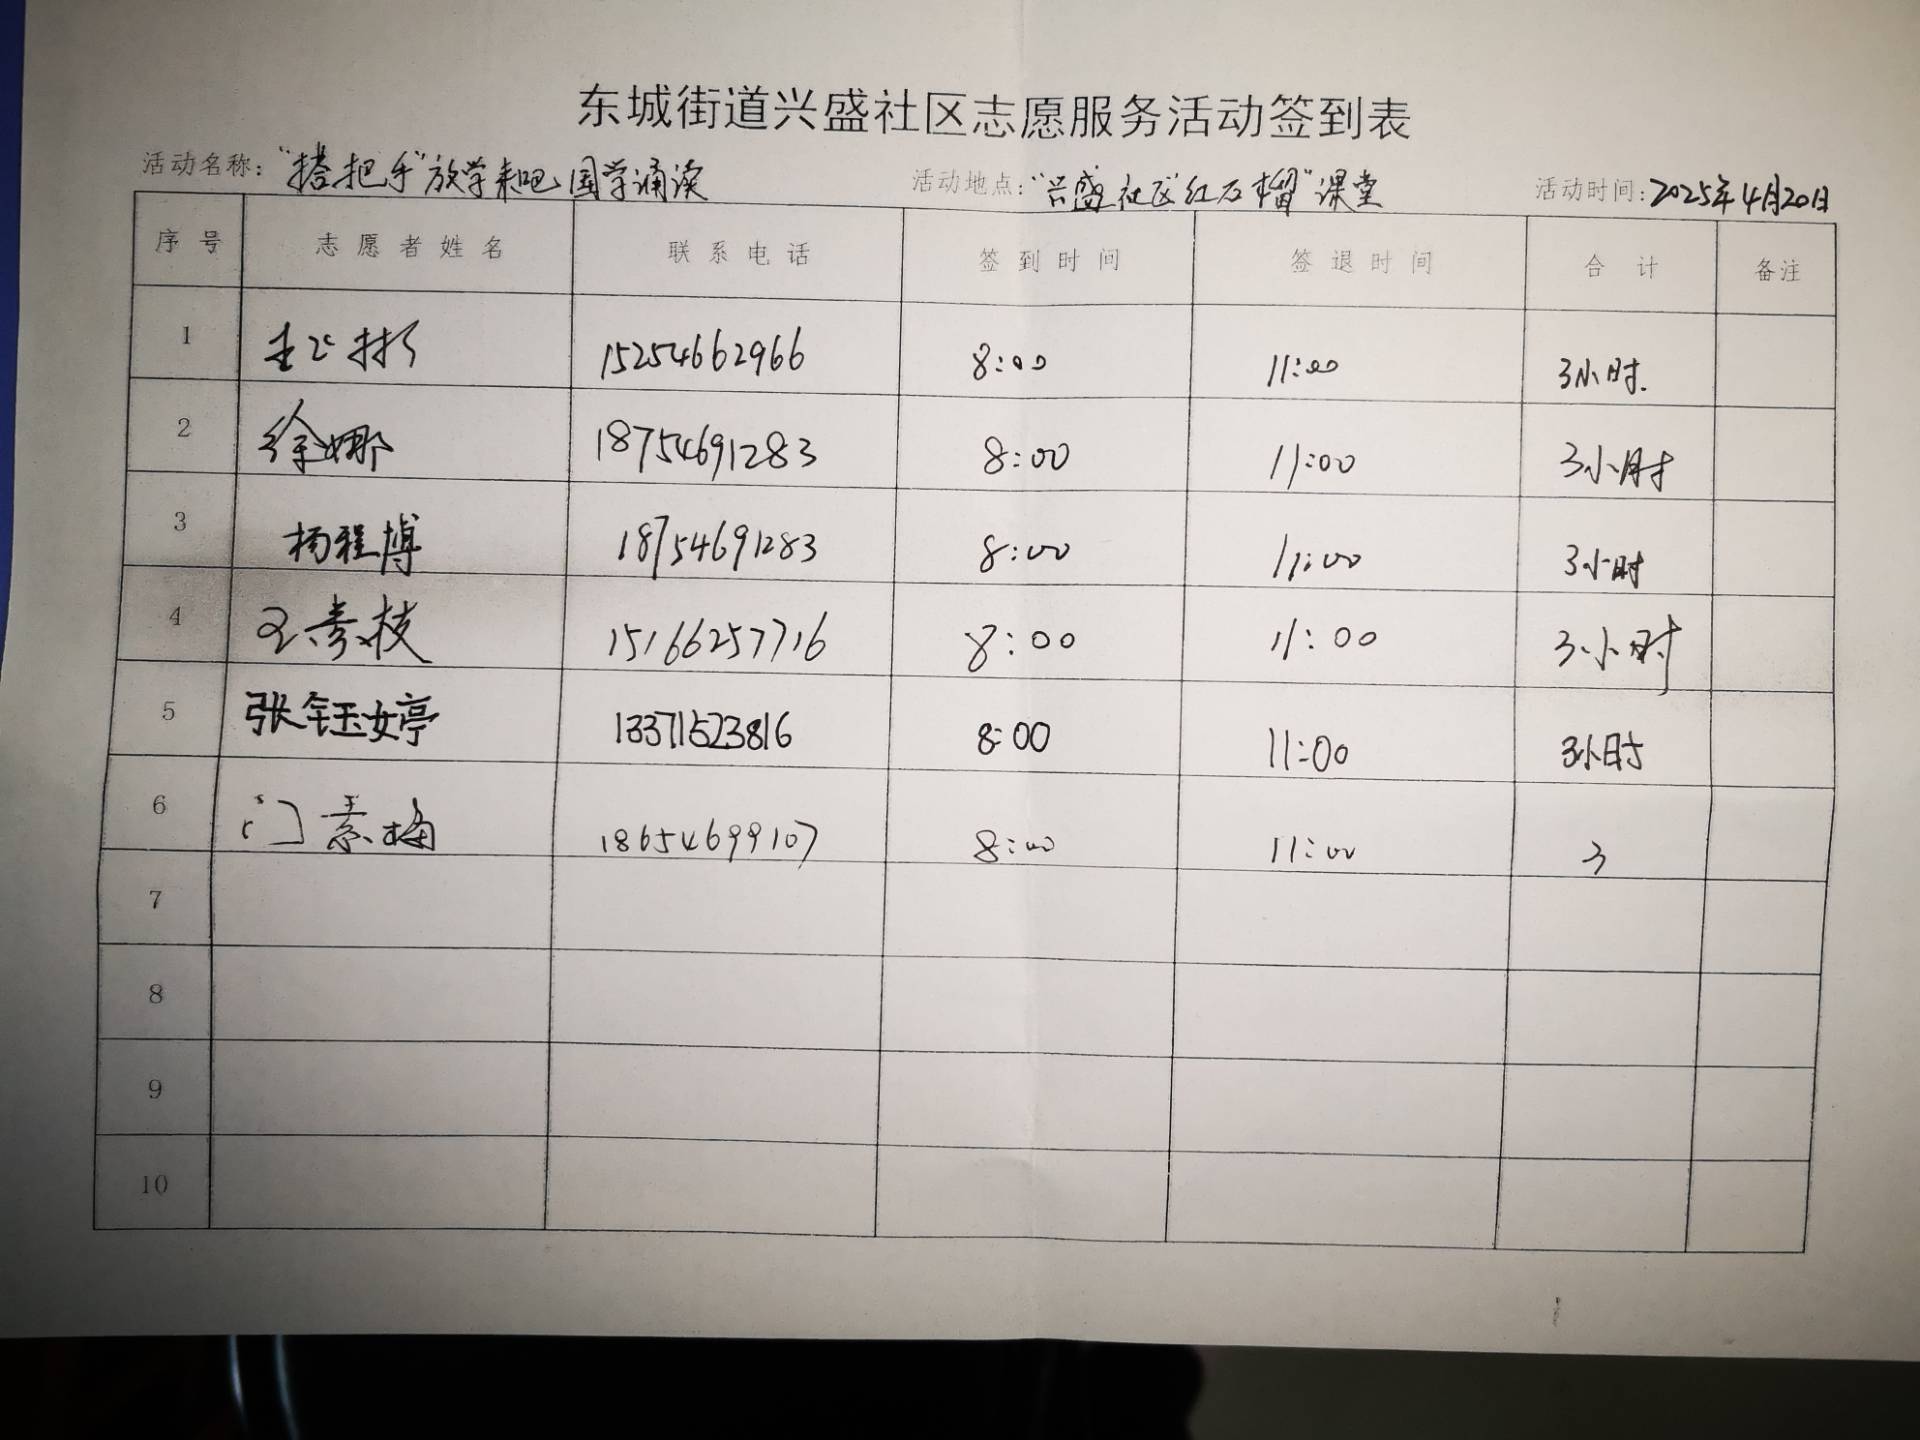 东城街道兴盛社区志愿服务活动签到表
活动名称："搭把手"放学来吧国学诵读 活动地点："兴盛社区"红石榴"课堂 活动时间：2025年4月20日
序号 志愿者姓名 联系电话 签到时间 签退时间 合计 备注
1 15254662966 8:00 11:00 3小时.
2 徐娜 18754691283 8:00 11:00 3小时
3 杨程博 18754691283 8:00 11:00 3小时
4 王秀枝 15166257716 8:00 11:00 3小时
5 张钰婷 13371523816 8:00 11:00 3小时
6 门素梅 18654699107 8:00 11:00 3
7
8
9
10